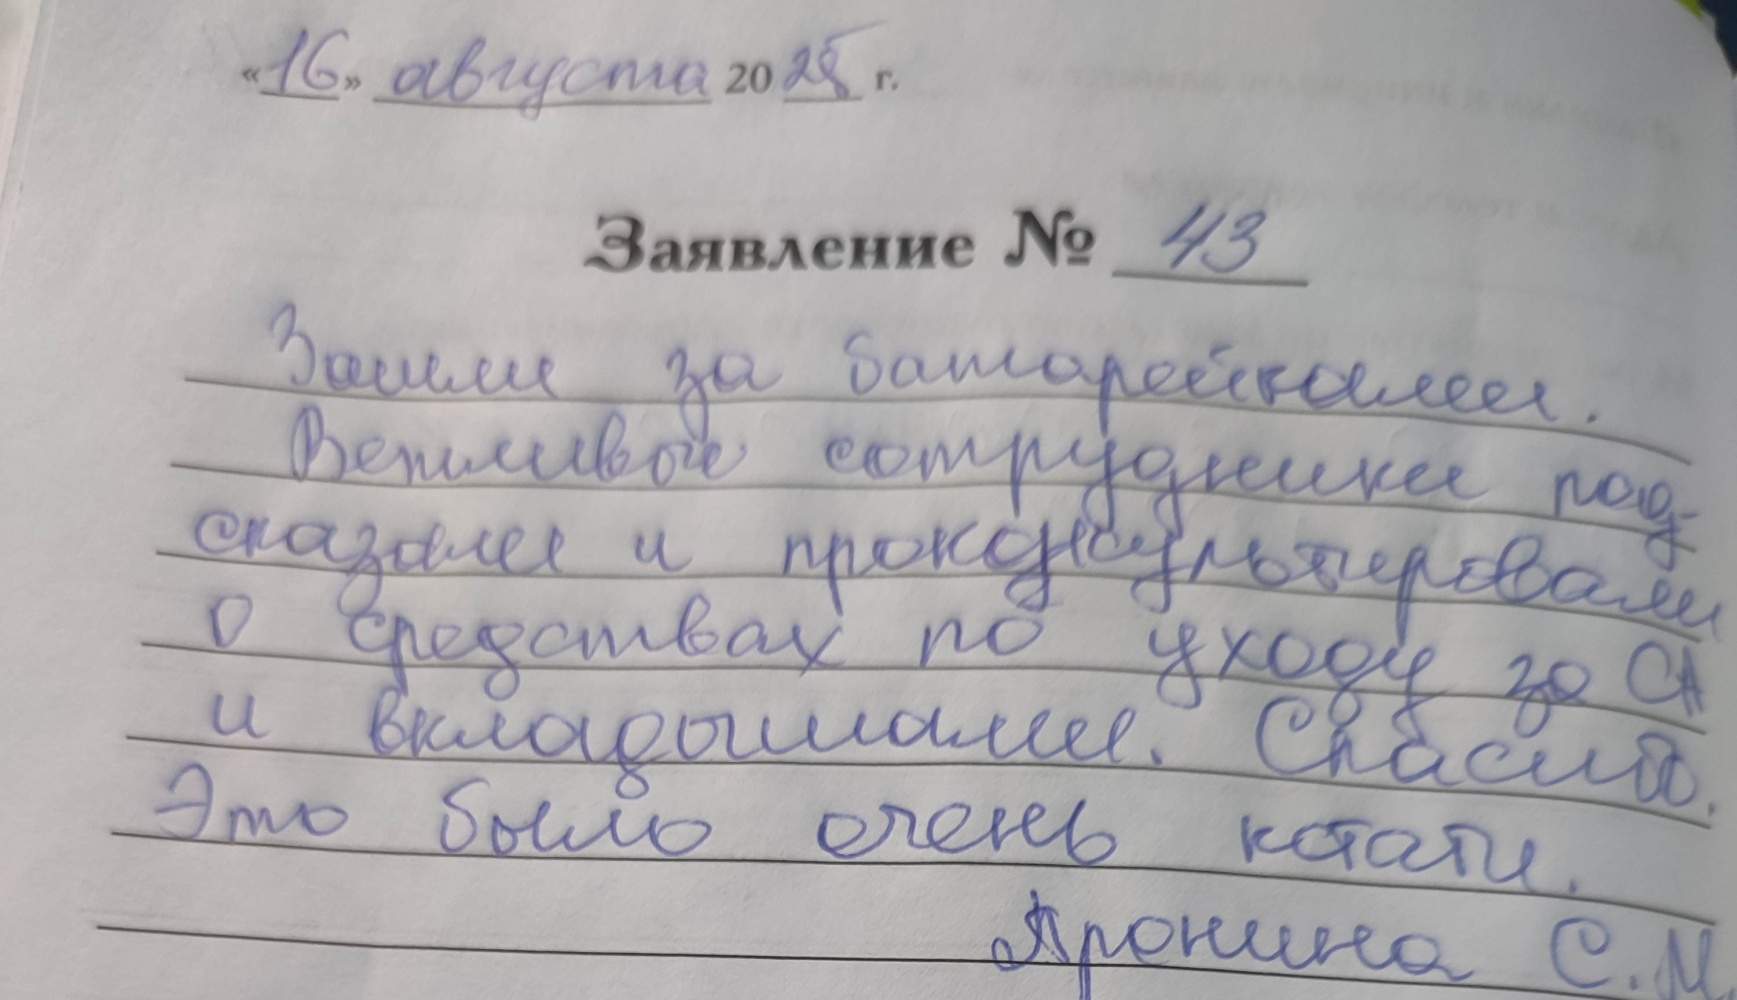 «16» августа 2025 г.
Заявление № 43
Зашли за батарейками.
Вежливые сотрудники под-
сказали и проконсультировали
о средствах по уходу за СА
и вкладышами. Спасибо.
Это было очень кстати.
Аронина С.М.